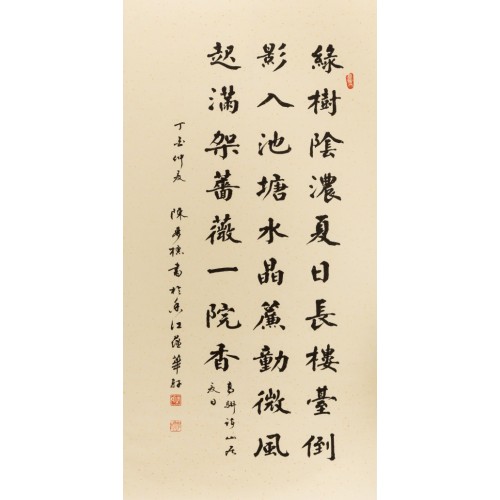 綠樹陰濃夏日長樓臺倒
影入池塘水晶簾動微風
起滿架薔薇一院香
高駢詩山居
夏日
丁亥仲夏 陳書於香江蘊華軒